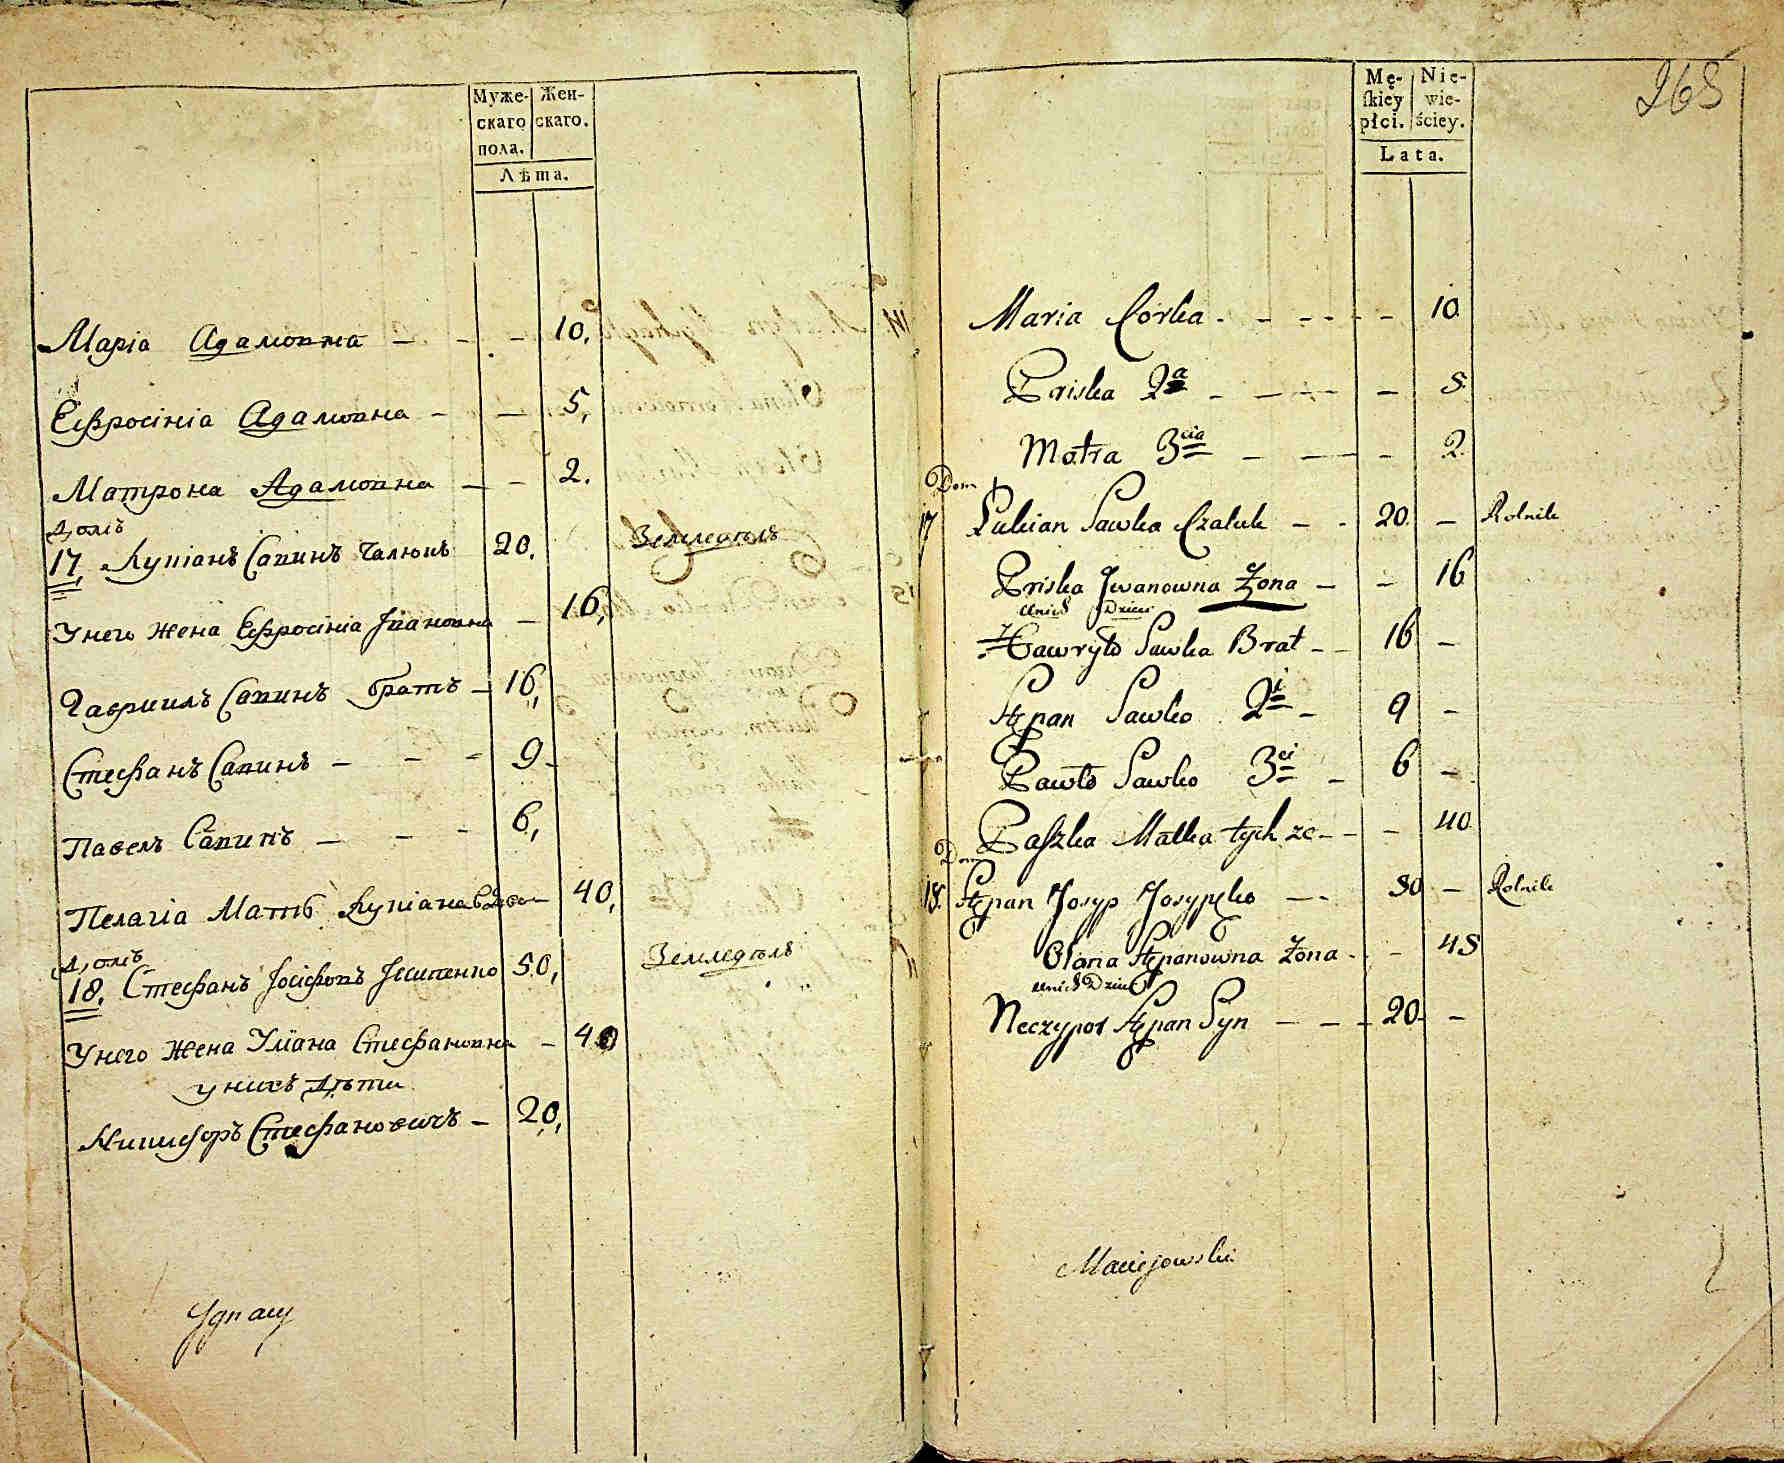 Муже- Жен-
скаго скаго.
пола.
Лѣта.
Маріа Адамовна — — — 10,
Ефросініа Адамовна — — 5,
Матрона Адамовна — — 2.
Домъ
17, Лукіанъ Савинъ Чалюкъ 20. Земледѣлъ
У него жена Ефросініа Івановна — 16,
Гавриилъ Савинъ братъ — 16,
Стефанъ Савинъ — — — 9 —
Павелъ Савинъ — — — 6,
Пелагіа Мать Лукіана 40,
Домъ
18, Стефанъ Іосіфовъ Іосипенко 50, Земледѣлъ
У него жена Уліана Стефановна — 40
у нихъ дѣти
Никифоръ Стефановичъ — 20,
Ygnacy
268
Mę- Nie-
ſkiey wie-
płci. ściey.
Lata.
Maria Corka - - - - - - 10
Priska 2a - - - - - 5.
Motra 3cia - - - - 2
Dom
17 Łukian Sawka Czaluk - - 20. - Rolnik
Priska Jwanowna Żona - - 16
unich Dzieci
Hawryło Sawka Brat - - 16 -
Stepan Sawko 2i - 9 -
Pawło Sawko 3ci - 6 -
Paſzka Matka tych że - - - 40
Dom
18. Stepan Josyp Josypęko - - 50 - Rolnik
Olana Stepanowna Żona - - 45
unich Dzieci
Neczypor Stepan Syn - - - 20. -
Maciejowski